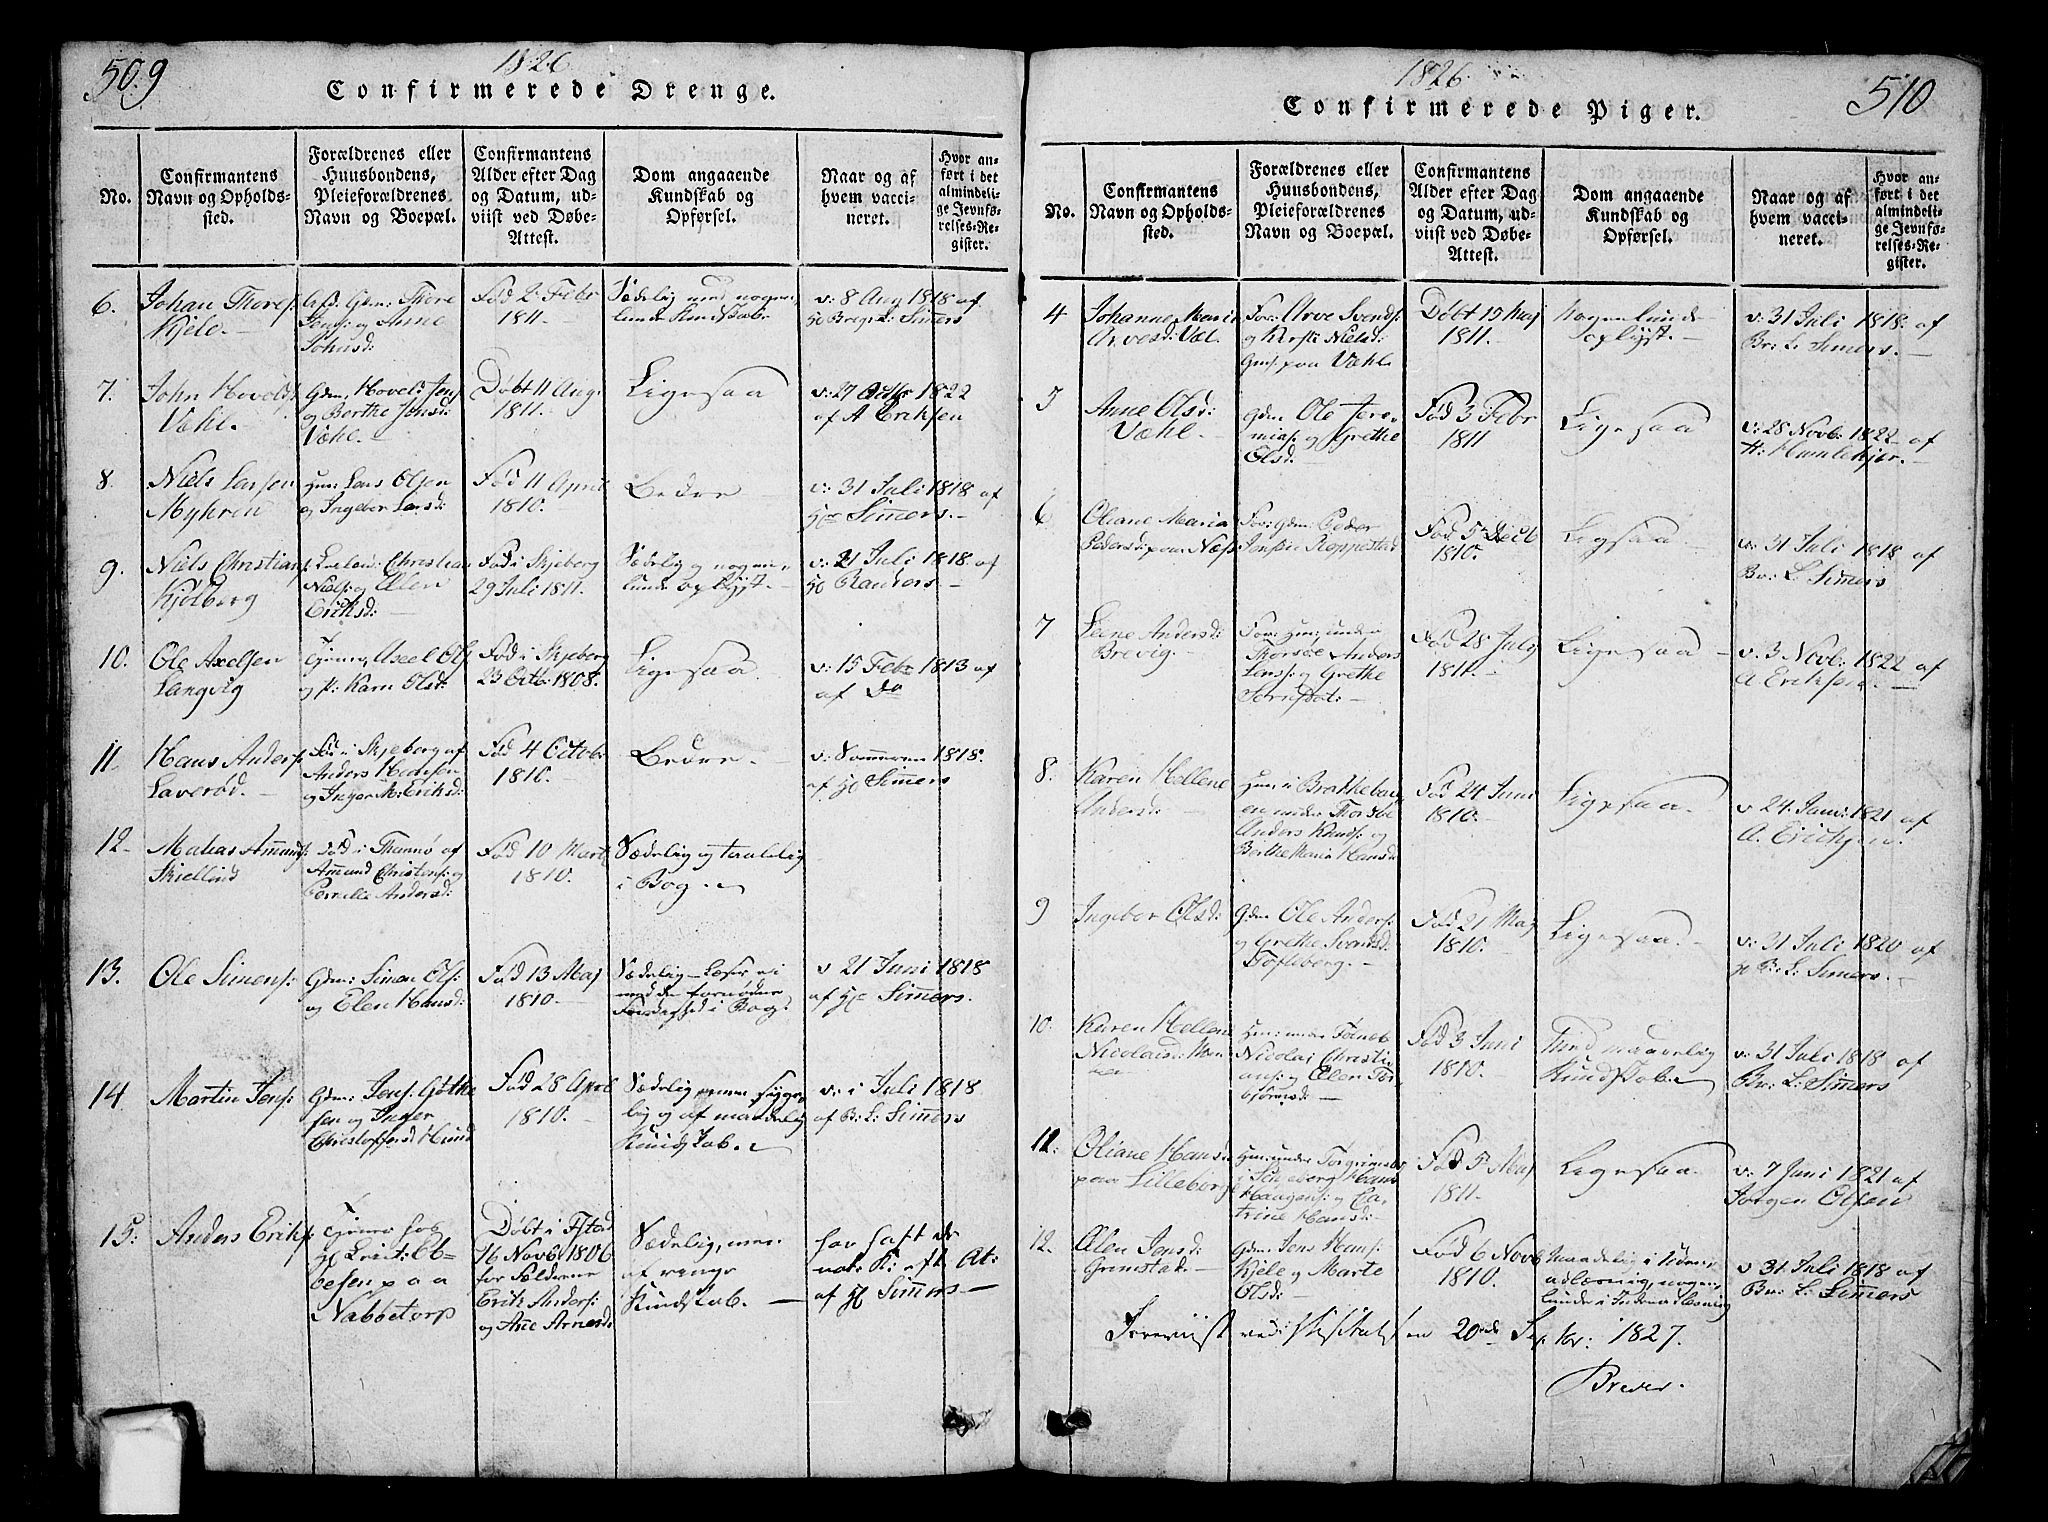 509
1826
Confirmerede Drenge.
No.
Confirmantens
Navn og Opholds-
sted.
Forældrenes eller
Huusbondens,
Pleieforældrenes
Navn og Boepæl.
Confirmantens
Alder efter Dag
og Datum, ud-
viist ved Døbe-
Attest.
Dom angaaende
Kundskab og
Opførsel.
Naar og af
hvem vacci-
neret.
Hvor an-
ført i det
almindeli-
ge Jevnfø-
relses-Re-
gister.
6.
Johan Thores:
Kjele.
Gdm: Thore
Jens: og Anne
Johnsd:
Fød 2 Febr
1811.
Sædelig med nogen-
lunde Kundskab
v: 8 Aug 1818 af
Simers
7.
John Hovelds:
Væhl.
Gdm: Hovel Jens:
og Berthe Jensd:
Væhl.
Døbt 11 Aug:
1811.
Ligesaa
v: 27 Octbr 1822
af A Eriksen
8.
Niels Larsen
Myhren
Huu: Lars Olsen
og Ingebor Larsd:
Fød 11 April
1810.
Bedre
v: 31 Juli 1818 af
Hr Simers.
9.
Niels Christians:
Kjølberg
Christian
Niels: og Ellen
Eriksd:
Fød i Skjeberg
29 Juli 1811.
Sædelig og nogen-
lunde oplyst.
v: 21 Juli 1818 af
Randers.
10.
Ole Axelsen
Langvig
Axel Ols:
og Karn Olsd:
Fød i Skjeberg
23 Octb: 1808.
Ligesaa
v: 15 Febr 1813 af
af Do
11.
Hans Anders:
Laverød.
Fød i Skjeberg af
Anders
og Inger M: Eriksd:
Fød 4 Octobr
1810.
Bedre.
v: Sommeren 1818.
af Hr Simers
12.
Mathias Amunds:
Skiellind
Fød i Thunø af
Amund Christens: og
Pernille Andersd:
Fød 10 Mart
1810.
Sædelig og taalelig
i Bog.
13.
Ole Simens:
Gdm: Simon Ols:
og Elen Hansd:
Fød 13 Maj
1810.
Sædelig
med de fornødne
i Bog
v 21 Juni 1818
af Hr Simers.
14
Martin Jens:
Gdm: Jens: Gothe
sen og Inger
Christoffersd Hund
Fød 28 April
1810.
Sædelig
og af maadelig
Kundskab.
v: i Juli 1818
af B: L: Simers
15.
Anders Eriks:
Tjener hos
Hr Leid: Eb-
besen paa
Nabbetorp
Døbt i Fstad
16 Novbr 1806
for Fældrene
Erik Anders:
og Ane Arnesd:
Sædelig, men
af ringe
Kundskab.
har haft de
nat: K: eft At:
af Hr Simers
1826
510
Confirmerede Piger.
No.
Confirmantens
Navn og Opholds-
sted.
Forældrenes eller
Huusbondens,
Pleieforældrenes
Navn og Boepæl.
Confirmantens
Alder efter Dag
og Datum, ud-
viist ved Døbe-
Attest.
Dom angaaende
Kundskab og
Opførsel.
Naar og af
hvem vacci-
neret.
Hvor an-
ført i det
almindeli-
ge Jevnfø-
relses-Re-
gister.
4
Johanne Marie
Arvesd: Væl.
For: Arve Svends:
og Kirste Nielsd:
paa Væhl
Døbt 19 Maj
1811.
Nogenlunde
oplyst.
v: 31 Juli 1818: af
Br: L: Simers.
5
Anne Olsd:
Væhl.
Gdm Ole Jero-
mias: og Grethe
Olsd:
Fød 3 Febr
1811
Ligesaa
v: 28 Novb: 1822 af
H: Humlekjer.
6
Oliane Maria
Pedersd: paa Næss
For: Gdm: Peder
Jensen Roppestad
Fød 5 Decb
1810.
Ligesaa
v: 31 Juli 1818 af
Br: L: Simers
7
Leene Andersd:
Brevig.
For: Huu: under
Thorsøe Anders
Lars: og Grethe
Fød 28 July
1811.
Ligesaa
v: 3 Novb: 1822 af
A Eriksen.
8.
Karen Hellene
Andersd:
Huu: i Brathebak
en under Thorsøe
Anders Knuds: og
Berthe Maria Hansd
Fød 24 Juni
1810.
Ligesaa.
v 24 Janu: 1821 af
A. Erichsen.
9
Ingebor Olsd:
Gdm Ole Anders:
og Grethe Svendsd:
Tofleberg.
Fød 21 Maj
1810.
Ligesaa.
v: 31 Juli 1820 af
B: L: Simers.
10.
Karen Hellene
Nicolaisd:
Huu: under Torneb
Nicolai Christi
ans: og Elen Tor-
bjørnsd:
Fød 3 Juni
1810.
med maadelig
Kundskab.
v: 31 Juli 1818 af
Br: L: Simers
11.
Oliane Hansd
paa Lilleborge
Huu: under Torgrimsby
i Skjeberg Hans
Haagens: og Ca-
trine Hansd:
Fød 5 Maj
1811.
Ligesaa.
v: 7 Juni 1821 af
Jørgen Olsen
12.
Elen Jensd:
Grimstad:
Gdm Jens Hans:
Kjele og Marte
Olsd:
Fød 6 Novb
1810.
Maadelig i Uden-
adlæsning, nogen-
lunde i Indenadlæsning
v 31 Juli 1818 af
Br: L: Simers
Foreviist ved Visitatsen 20de Septbr: 1827.